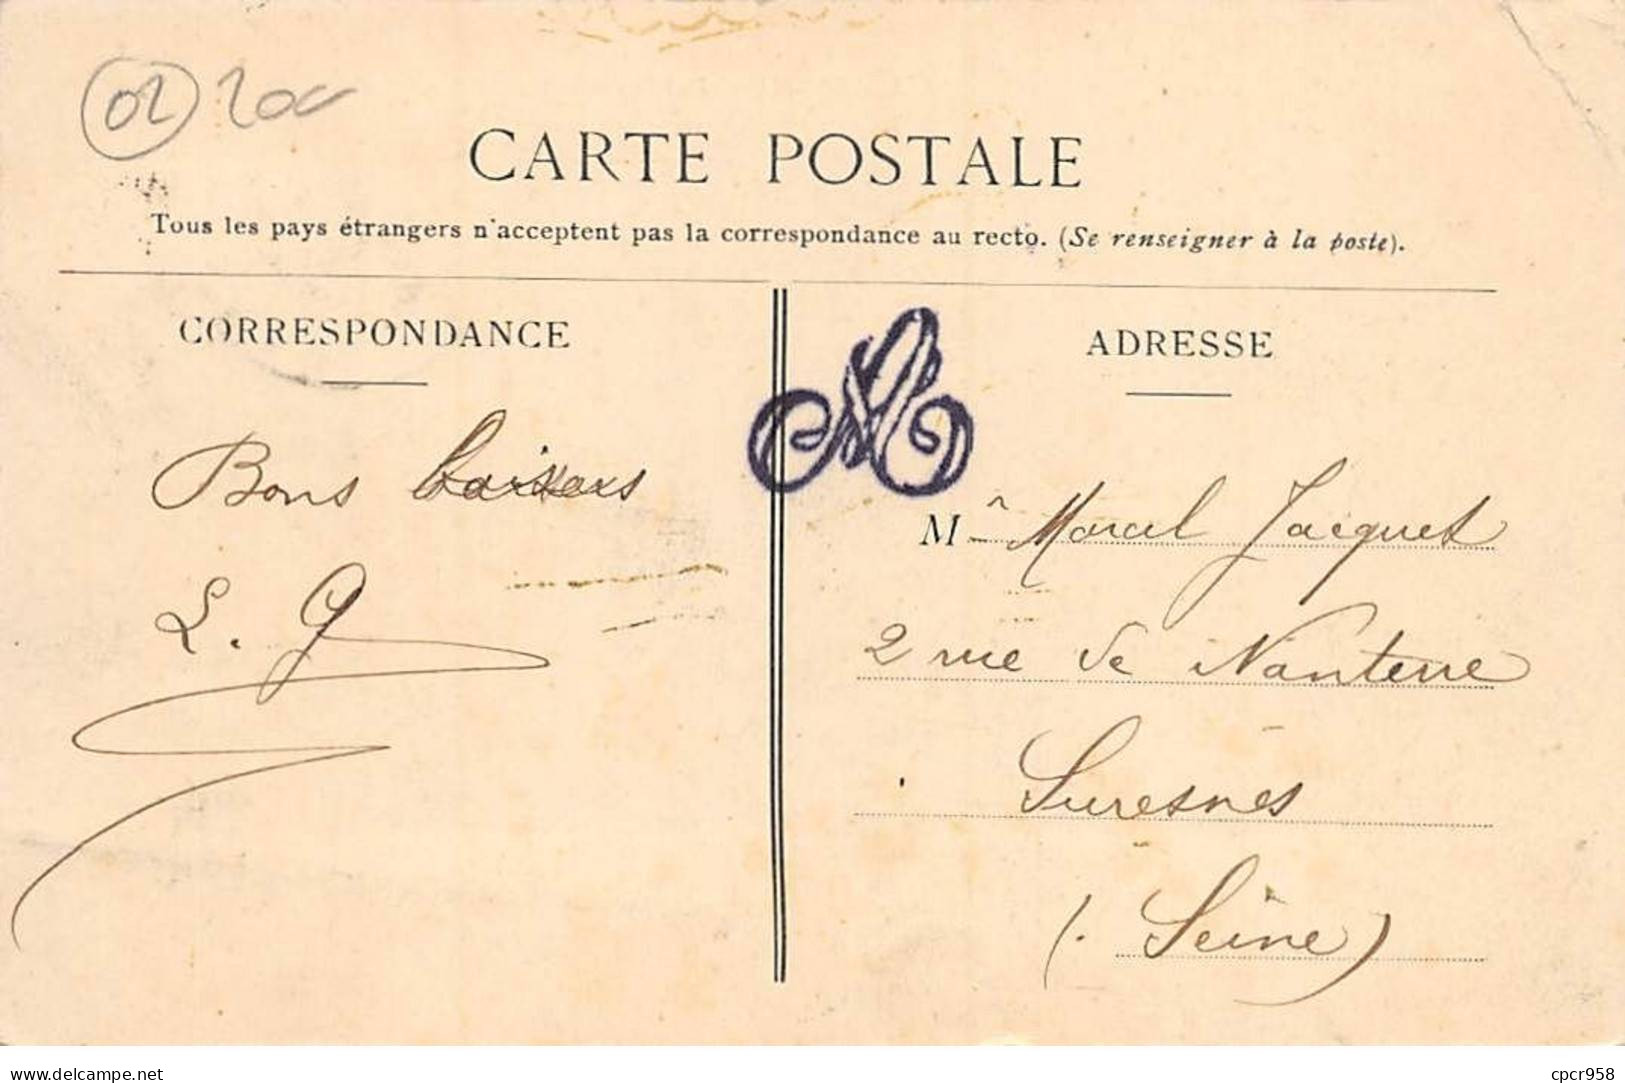 02 20c
CARTE POSTALE
Tous les pays étrangers n'acceptent pas la correspondance au recto. (Se renseigner à la poste).
CORRESPONDANCE
ADRESSE
Bons baisers
L. J
M r Marcel Jacquet
2 rue de Nanterre
Suresnes
(Seine)
www.delcampe.net
cpcr958